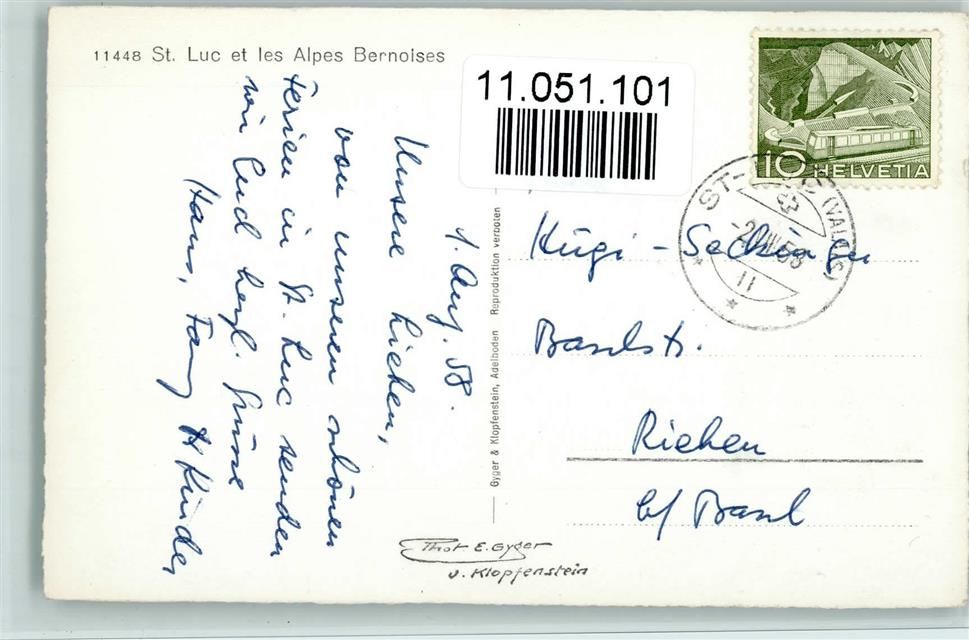 11448 St. Luc et les Alpes Bernoises
11.051.101
10 HELVETIA
ST-LUC (VALAIS)
-2.VIII.58
11
1. Aug. 58.
Unsere Lieben,
von unseren schönen
Ferien in St. Luc senden
wir Euch herzl. Grüsse
Hans, Fanny & Kinder
Gyger & Klopfenstein, Adelboden Reproduktion verboten
Hügi - Seckinger
Baselstr.
Riehen
b/ Basel
Phot E. Gyger
u. Klopfenstein